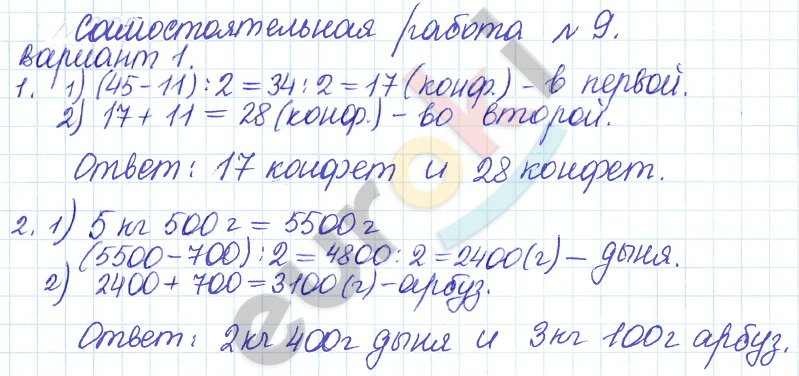 Самостоятельная работа № 9.
Вариант 1.
1. 1) (45-11):2=34:2=17(конф.)-в первой.
2) 17+11=28(конф.)-во второй.
Ответ: 17 конфет и 28 конфет.
2. 1) 5 кг 500 г = 5500 г
(5500-700):2=4800:2=2400(г)-дыня.
2) 2400+700=3100(г)-арбуз.
Ответ: 2кг 400г дыня и 3кг 100г арбуз.
euroki